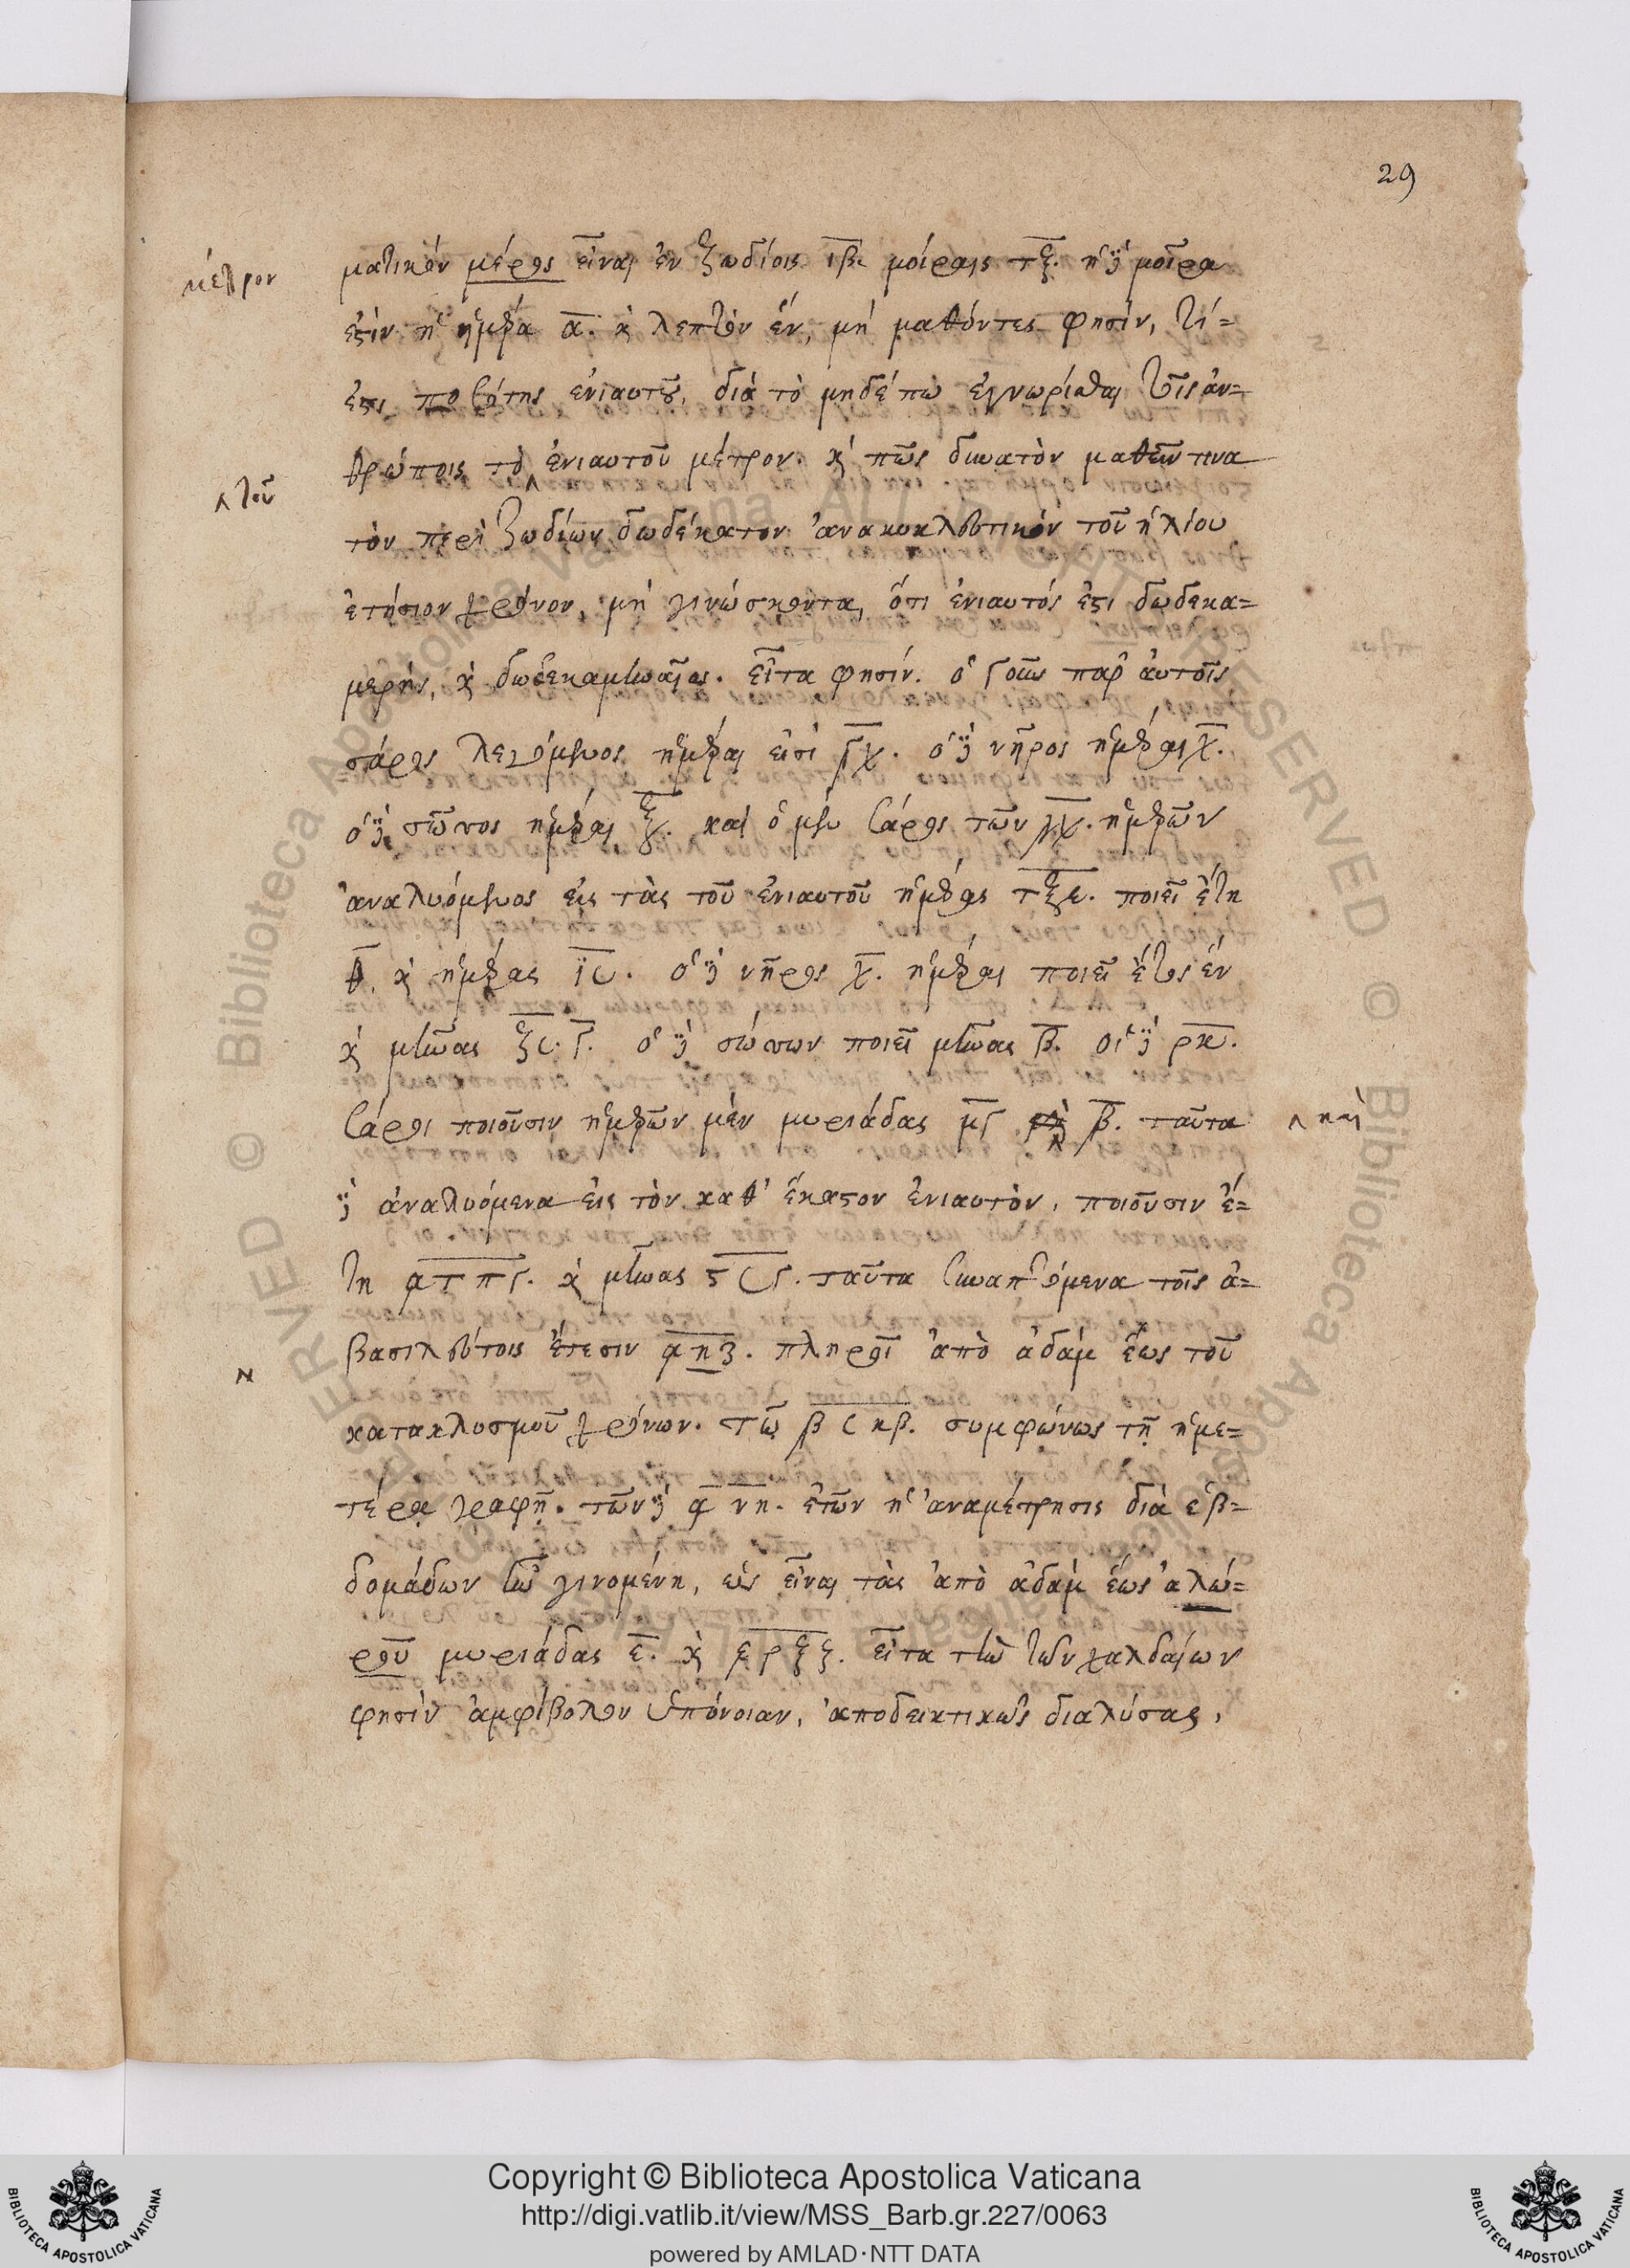 29
μέτρον
ματικὸν μέρος εἶναι ἐν ζωδίοις ιβ. μοίραις τξ. ἡ δὲ μοῖρα
ἐστὶν ἡ ἡμέρα α. καὶ λεπτὸν ἕν, μὴ μαθόντες φησίν, τί=
ἐστι ποσότης ἐνιαυτοῦ, διὰ τὸ μηδέπω ἐγνωρίσθαι τοῖς ἀν=
θρώποις τὸ ἐνιαυτοῦ μέτρον. καὶ πῶς δυνατὸν μαθεῖν τινα
^ τοῦ
τὸν περὶ ζωδίων δωδέκατον ἀνακυκλευτικὸν τοῦ ἡλίου
ἐτήσιον χρόνον, μὴ γινώσκοντα, ὅτι ἐνιαυτός ἐστι δωδεκα=
μερής, καὶ δωδεκαμηνιαῖος. εἶτα φησίν. ὁ γοῦν παρ' αὐτοῖς
σάρος λεγόμενος ἡμέραι εἰσὶ γχ. ὁ δὲ νῆρος ἡμέραι χ.
ὁ δὲ σῶσος ἡμέραι ξ. καὶ ὁ μὲν σάρος τῶν γχ. ἡμερῶν
ἀναλυόμενος εἰς τὰς τοῦ ἐνιαυτοῦ ἡμέρας τξε. ποιεῖ ἔτη
θ. καὶ ἡμέρας ις. ὁ δὲ νῆρος χ. ἡμέραι ποιεῖ ἔτος ἓν
καὶ μῆνας ξς. γ. ὁ δὲ σώσων ποιεῖ μῆνας β. οἱ δὲ ρκ.
σάροι ποιοῦσιν ἡμερῶν μὲν μυριάδας μγ β. ταῦτα
^ καὶ
δὲ ἀναλυόμενα εἰς τὸν καθ' ἕκαστον ἐνιαυτὸν, ποιοῦσιν ἔ=
τη ατπγ. καὶ μῆνας ς ς γ. ταῦτα συναπτόμενα τοῖς ἀ=
βασιλεύτοις ἔτεσιν ανζ. πληροῖ ἀπὸ ἀδάμ ἕως τοῦ
ν
κατακλυσμοῦ χρόνων. τῶ β ς κβ. συμφώνως τῇ ἡμε=
τέρᾳ γραφῇ. τῶν δὲ α νη. ἐτῶν ἡ ἀναμέτρησις διὰ ἑβ=
δομάδων ἦν γινομένη, ὡς εἶναι τὰς ἀπὸ ἀδάμ ἕως ἀλώ=
ρου μυριάδας ε. καὶ ερξζ. εἶτα τὴν τῶν χαλδαίων
φησὶν ἀμφίβολον ὑπόνοιαν, ἀποδεικτικῶς διαλύσας,
Copyright © Biblioteca Apostolica Vaticana
http://digi.vatlib.it/view/MSS_Barb.gr.227/0063
powered by AMLAD·NTT DATA